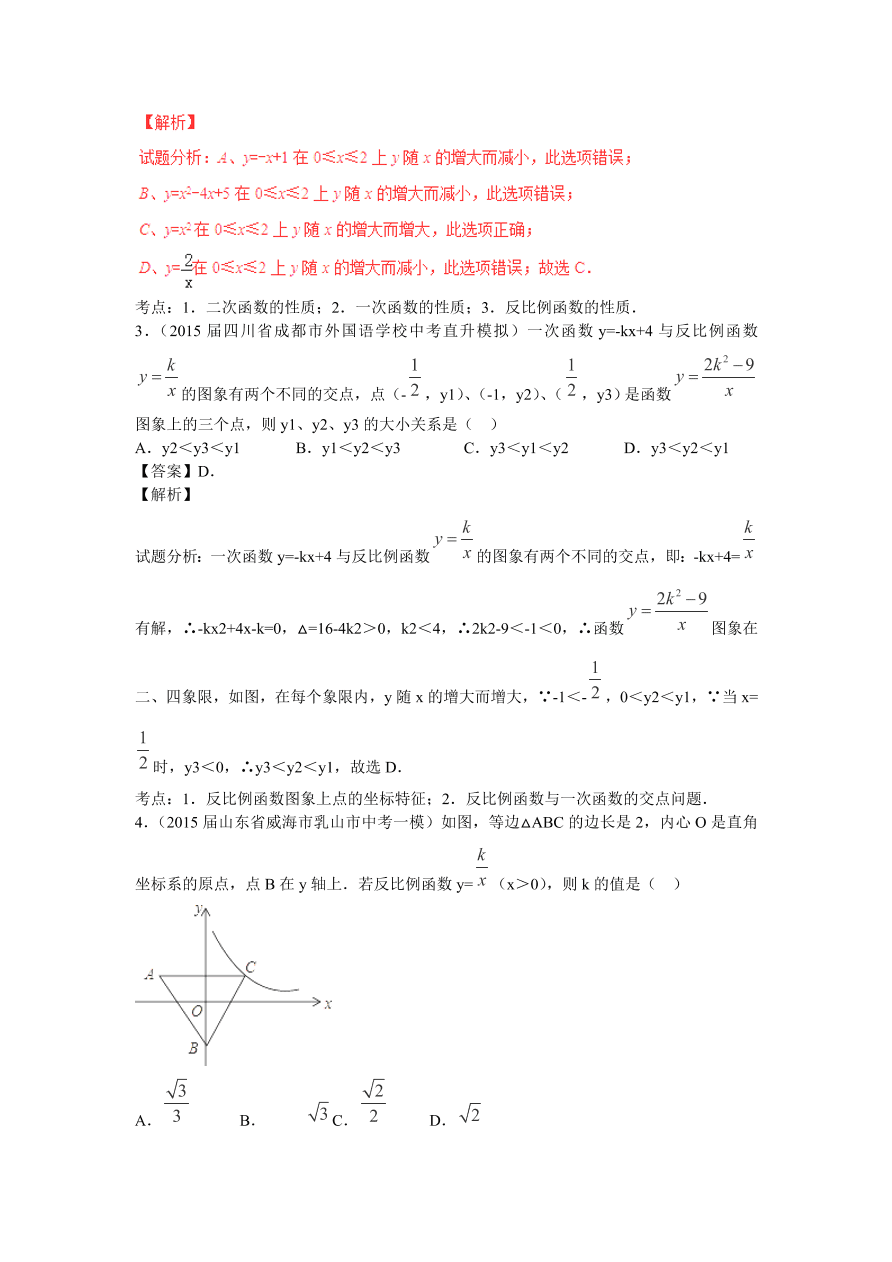 【解析】
试题分析：A、y=−x+1 在 0≤x≤2 上 y 随 x 的增大而减小，此选项错误；
B、y=x²−4x+5 在 0≤x≤2 上 y 随 x 的增大而减小，此选项错误；
C、y=x² 在 0≤x≤2 上 y 随 x 的增大而增大，此选项正确；
D、y=2/x 在 0≤x≤2 上 y 随 x 的增大而减小，此选项错误；故选 C．
考点：1．二次函数的性质；2．一次函数的性质；3．反比例函数的性质．
3．（2015 届四川省成都市外国语学校中考直升模拟）一次函数 y=-kx+4 与反比例函数
y=k/x 的图象有两个不同的交点，点（-1/2，y1）、（-1，y2）、（1/2，y3）是函数 y=(2k²−9)/x
图象上的三个点，则 y1、y2、y3 的大小关系是（ ）
A．y2＜y3＜y1 B．y1＜y2＜y3 C．y3＜y1＜y2 D．y3＜y2＜y1
【答案】D．
【解析】
试题分析：一次函数 y=-kx+4 与反比例函数 y=k/x 的图象有两个不同的交点，即：-kx+4=k/x
有解，∴-kx2+4x-k=0，△=16-4k2＞0，k2＜4，∴2k2-9＜-1＜0，∴函数 y=(2k²−9)/x 图象在
二、四象限，如图，在每个象限内，y 随 x 的增大而增大，∵-1＜-1/2，0＜y2＜y1，∵当 x=
1/2 时，y3＜0，∴y3＜y2＜y1，故选 D．
考点：1．反比例函数图象上点的坐标特征；2．反比例函数与一次函数的交点问题．
4．（2015 届山东省威海市乳山市中考一模）如图，等边△ABC 的边长是 2，内心 O 是直角
坐标系的原点，点 B 在 y 轴上．若反比例函数 y=k/x（x＞0），则 k 的值是（ ）
y
A C
O x
B
A．√3/3 B．√3 C．√2/2 D．√2